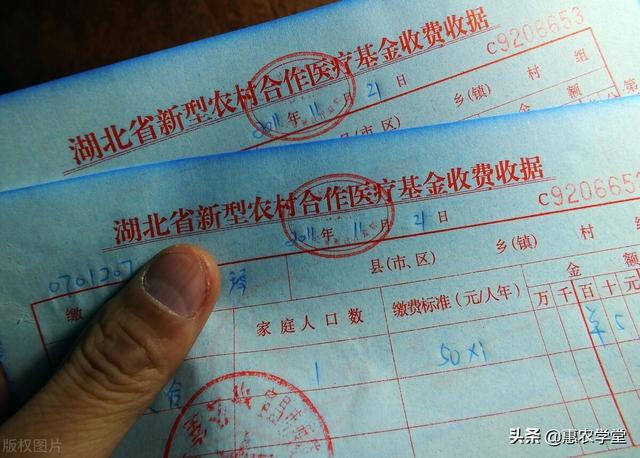 湖北省新型农村合作医疗基金收费收据
C9206653
2011年 11月 21日
县(市、区) 乡(镇) 村 组
金 额
湖北省新型农村合作医疗基金收费收据
C9206653
2011年 11月 21日
0701207
县(市、区) 乡(镇) 村
缴 家庭人口数 缴费标准(元/人年) 金 额
万 千 百 十 元
1 50×1 ¥ 5
版权图片
头条 @惠农学堂